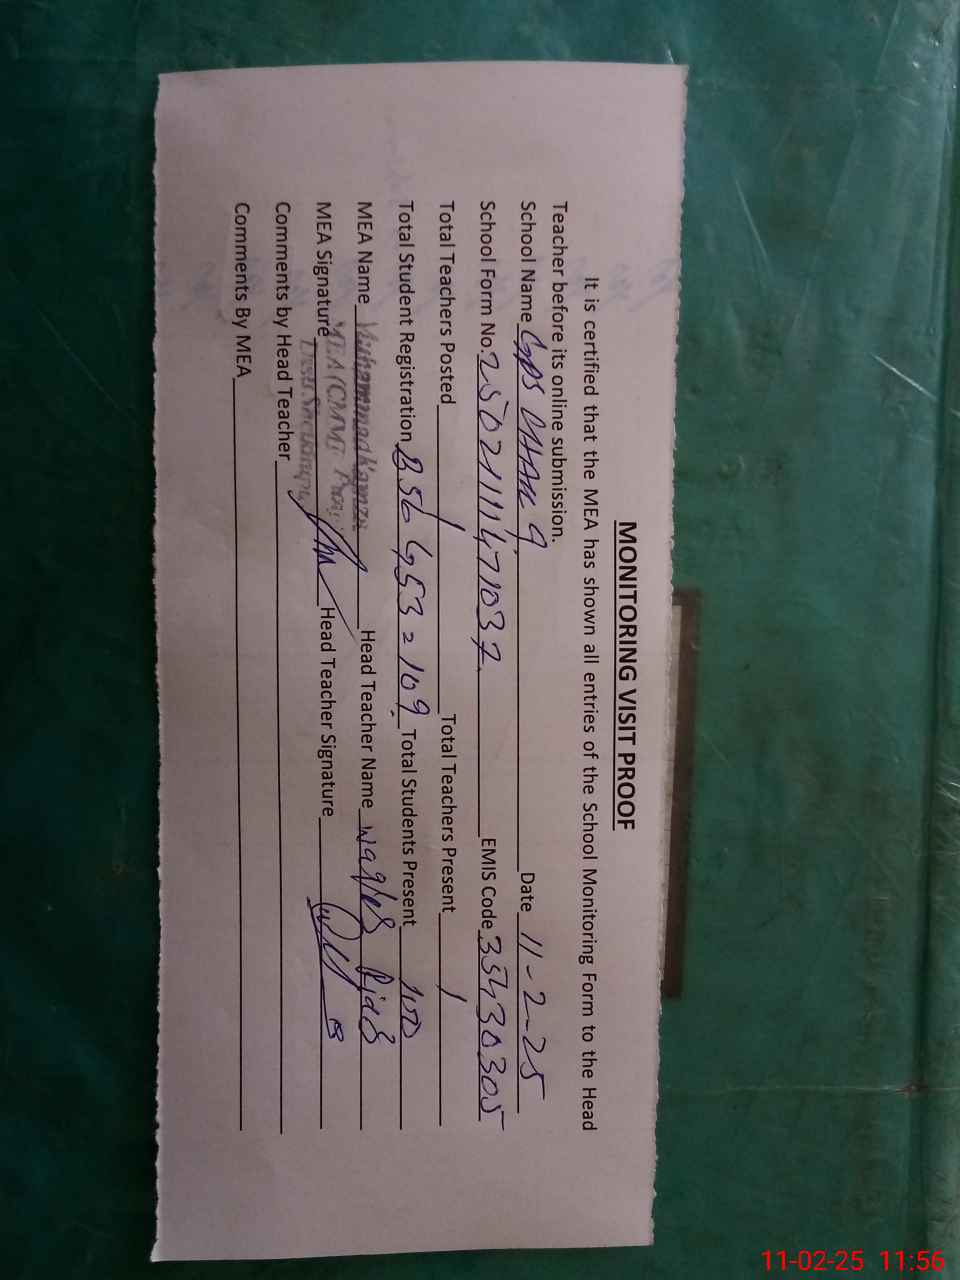 MONITORING VISIT PROOF
It is certified that the MEA has shown all entries of the School Monitoring Form to the Head
Teacher before its online submission.
School Name GPS CHAK 9 Date 11-2-25
School Form No. 25021111471037 EMIS Code 35430305
Total Teachers Posted 1 Total Teachers Present 1
Total Student Registration B 56 G 53 = 109 Total Students Present 100
MEA Name Muhammad Kamran Head Teacher Name Waqas
MEA Signature Head Teacher Signature
MEA (CMMF
Comments by Head Teacher
Comments By MEA
11-02-25 11:56